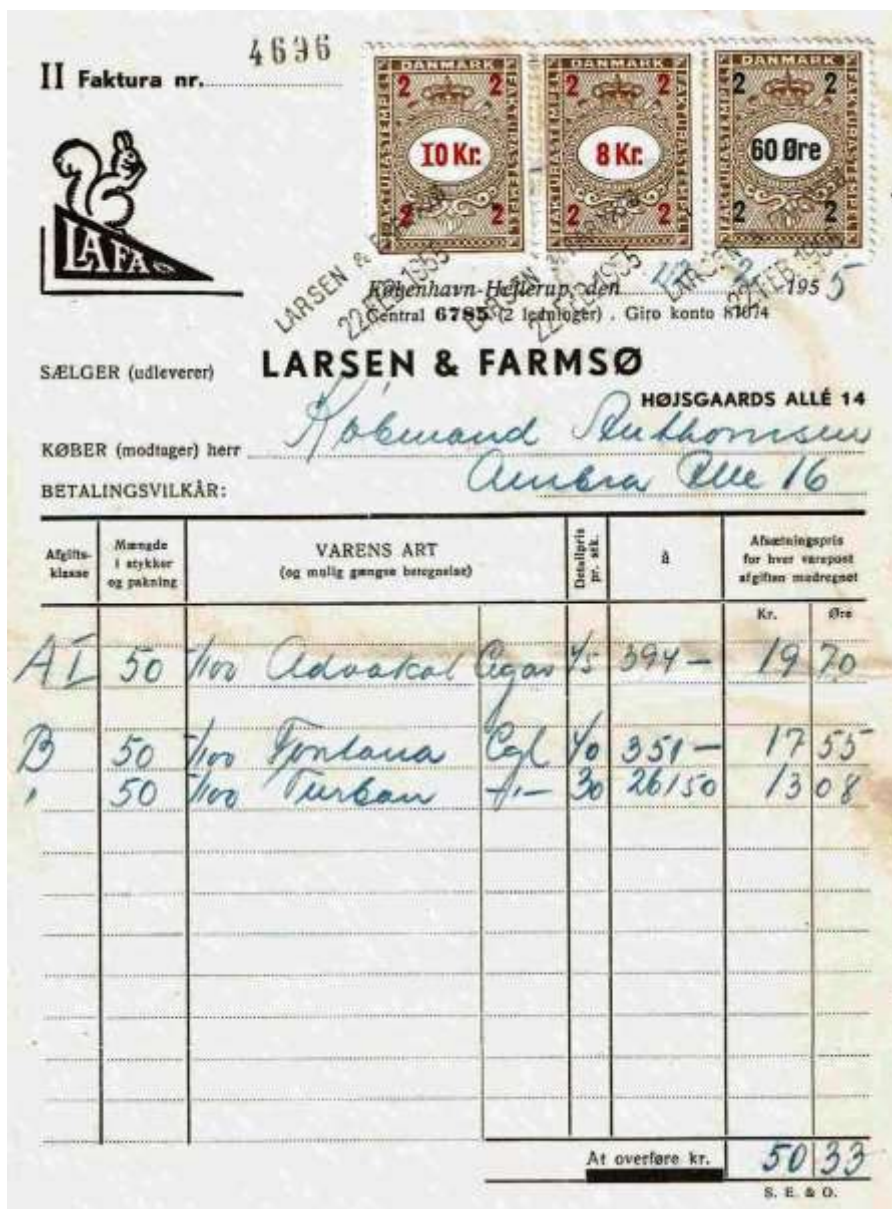 4696
II Faktura nr.
DANMARK DANMARK DANMARK
2 2 2 2 2 2
FAKTURASTEMPEL FAKTURASTEMPEL FAKTURASTEMPEL
10 Kr. 8 Kr. 60 Øre
2 2 2 2 2 2
LAFA
LARSEN & FARMSØ
22 FEB. 1955
København-Hellerup, den 22/2 1955
Central 6785 (2 ledninger) . Giro konto 81074
SÆLGER (udleverer) LARSEN & FARMSØ
HØJSGAARDS ALLÉ 14
KØBER (modtager) herr Købmand
Alle 16
BETALINGSVILKÅR:
Afgifts-klasse Mængde i stykker og pakning VARENS ART (og mulig gængse betegnelse) Detailpris pr. stk. à Afsætningspris for hver varepost afgiften medregnet
Kr. Øre
AI 50 1/100 Advokat Cigar 45 394 – 19 70
B 50 1/100 Fontana Cgl 40 351 – 17 55
" 50 1/100 Turban -"- 30 261 50 13 08
At overføre kr. 50 33
S. E. & O.